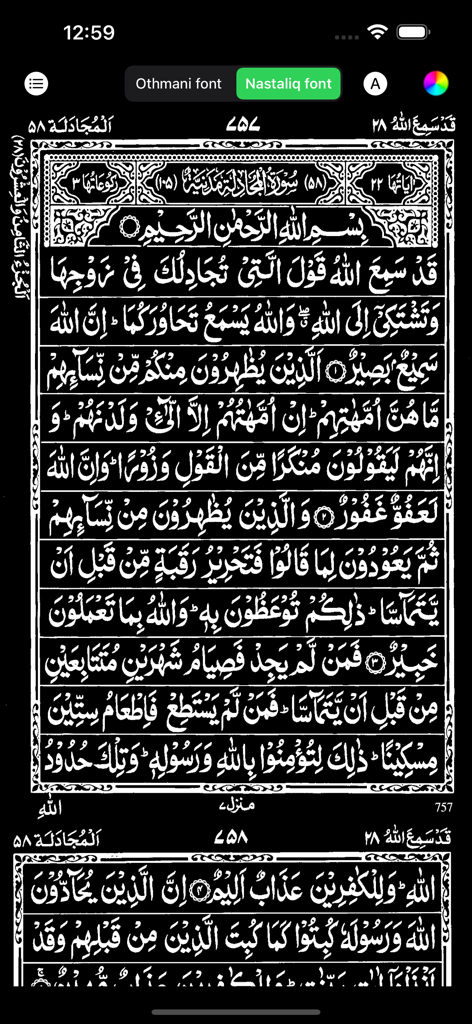 12:59
Othmani font Nastaliq font A
اَلْمُجَادَلَة ٥٨ ٧٥٧ قَدْ سَمِعَ اللهُ ٢٨
اٰيَاتُهَا ٢٢ (٥٨) سُوْرَةُ الْمُجَادَلَةِ مَدَنِيَّةٌ (١٠٥) رُكُوْعَاتُهَا ٣
بِسْمِ اللهِ الرَّحْمٰنِ الرَّحِيْمِ
قَدْ سَمِعَ اللهُ قَوْلَ الَّتِيْ تُجَادِلُكَ فِيْ زَوْجِهَا
وَتَشْتَكِيْٓ اِلَى اللهِ ۖ وَاللهُ يَسْمَعُ تَحَاوُرَكُمَا ؕ اِنَّ اللهَ
سَمِيْعٌۢ بَصِيْرٌ ۝١ اَلَّذِيْنَ يُظٰهِرُوْنَ مِنْكُمْ مِّنْ نِّسَآئِهِمْ
مَّا هُنَّ اُمَّهٰتِهِمْ ؕ اِنْ اُمَّهٰتُهُمْ اِلَّا الّٰٓـِٔيْ وَلَدْنَهُمْ ؕ وَ
اِنَّهُمْ لَيَقُوْلُوْنَ مُنْكَرًا مِّنَ الْقَوْلِ وَزُوْرًا ؕ وَاِنَّ اللهَ
لَعَفُوٌّ غَفُوْرٌ ۝٢ وَالَّذِيْنَ يُظٰهِرُوْنَ مِنْ نِّسَآئِهِمْ
ثُمَّ يَعُوْدُوْنَ لِمَا قَالُوْا فَتَحْرِيْرُ رَقَبَةٍ مِّنْ قَبْلِ اَنْ
يَّتَمَآسَّا ؕ ذٰلِكُمْ تُوْعَظُوْنَ بِهٖ ؕ وَاللهُ بِمَا تَعْمَلُوْنَ
خَبِيْرٌ ۝٣ فَمَنْ لَّمْ يَجِدْ فَصِيَامُ شَهْرَيْنِ مُتَتَابِعَيْنِ
مِنْ قَبْلِ اَنْ يَّتَمَآسَّا ؕ فَمَنْ لَّمْ يَسْتَطِعْ فَاِطْعَامُ سِتِّيْنَ
مِسْكِيْنًا ؕ ذٰلِكَ لِتُؤْمِنُوْا بِاللهِ وَرَسُوْلِهٖ ؕ وَتِلْكَ حُدُوْدُ
اللهِ منزل ٧ 757
اَلْمُجَادَلَة ٥٨ ٧٥٨ قَدْ سَمِعَ اللهُ ٢٨
اللهِ ؕ وَلِلْكٰفِرِيْنَ عَذَابٌ اَلِيْمٌ ۝٤ اِنَّ الَّذِيْنَ يُحَآدُّوْنَ
اللهَ وَرَسُوْلَهٗ كُبِتُوْا كَمَا كُبِتَ الَّذِيْنَ مِنْ قَبْلِهِمْ وَقَدْ